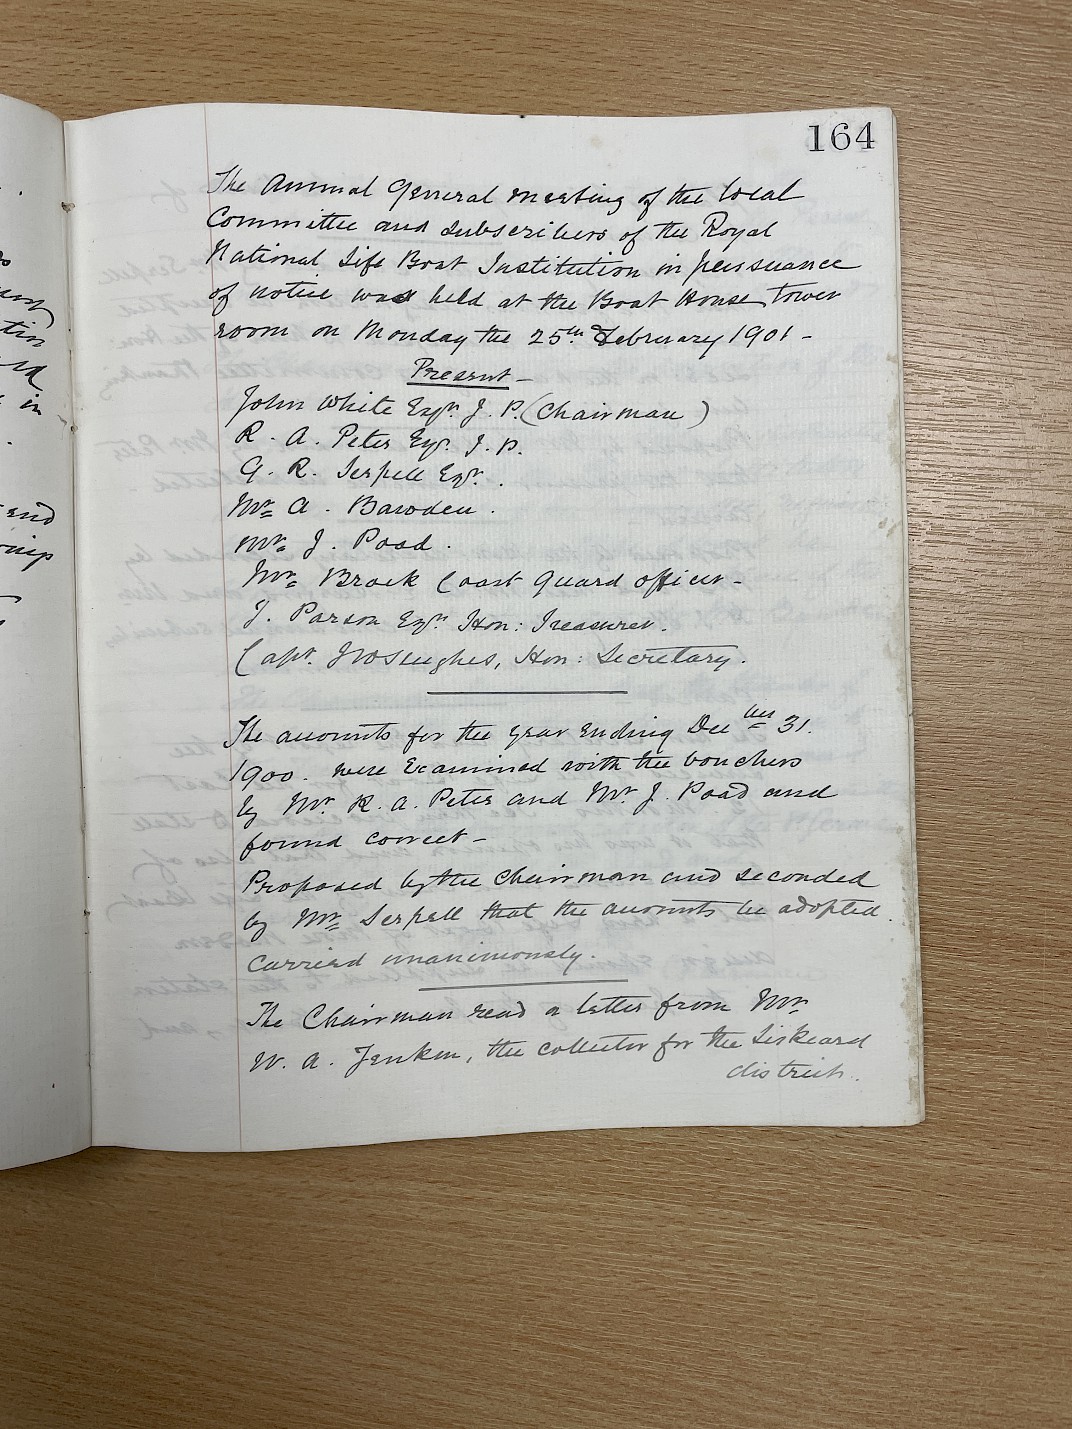 164
The Annual General meeting of the local
Committee and subscribers of the Royal
National Life Boat Institution in persuance
of notice was held at the Boat House Tower
room on Monday the 25th February 1901 -
Present -
John White Esqr. J. P. (Chairman)
R. A. Peter Esqr. J. P.
G. R. Serpell Esqr.
Mr A. Bawden.
Mr J. Poad.
Mr Brock Coast Guard officer -
J. Parson Esqr. Hon: Treasurer.
Capt. Hughes, Hon: Secretary.
The accounts for the year ending Dec 31.
1900. were Examined with the vouchers
by Mr. R. A. Peter and Mr. J. Poad and
found correct -
Proposed by the Chairman and seconded
by Mr Serpell that the accounts be adopted.
Carried unanimously.
The Chairman read a letter from Mr
W. A. Jenkin, the collector for the Liskeard
district.